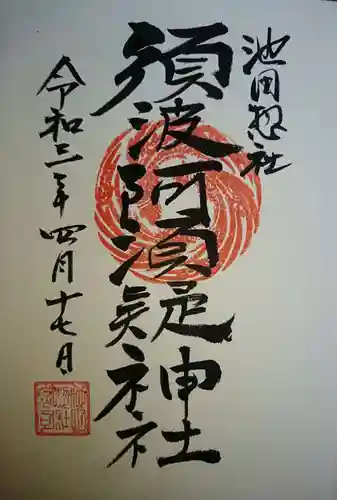 池田惣社
須波阿須疑神社
令和三年四月十七日